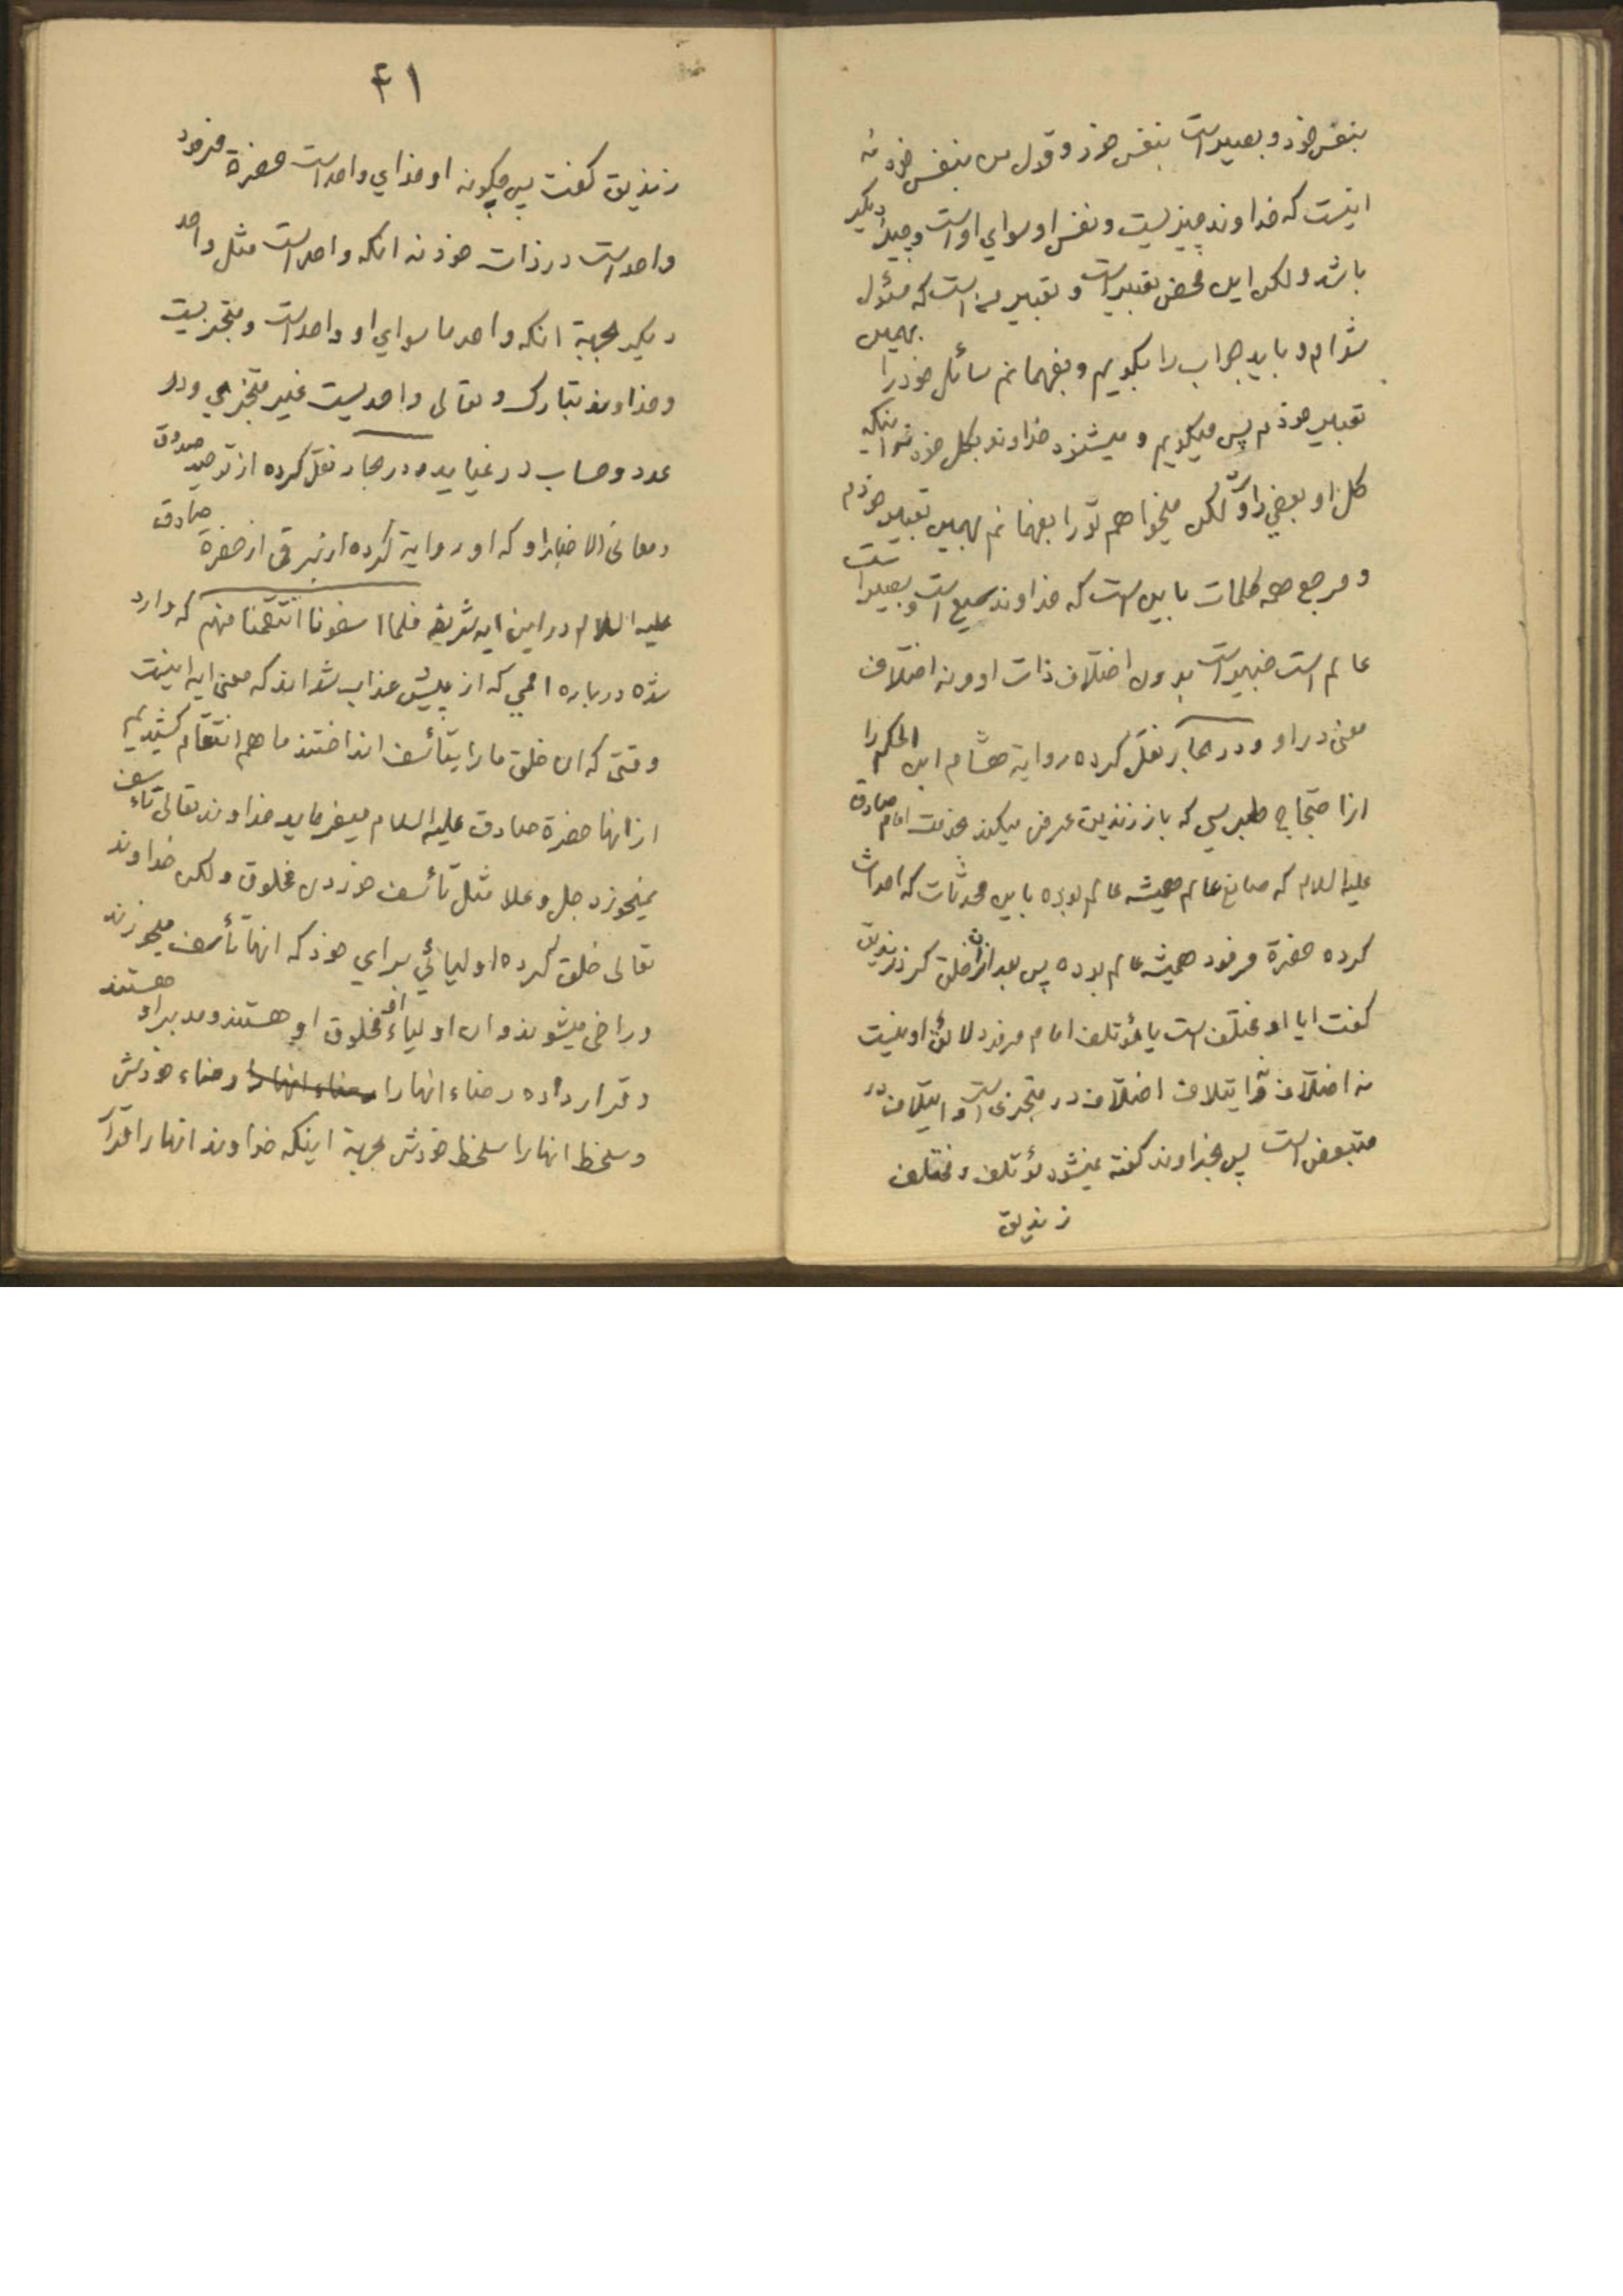 بنفس خود و بصیر است بنفس خود و قول من بنفس خود نه
اینست که خداوند چیزیست و نفس او سوای او است و چیز دیگر
باشد ولکن این محض تعبیر است و تعبیر من است که مسؤل
شده‌ام و باید جواب را بگویم و بفهمانم سائل خود را بهمین
تعبیر خودم پس میگویم و میشنود خداوند بکل خود نه اینکه
کل او بعضی دارد لکن میخواهم تو را بفهمانم بهمین تعبیر خودم
و مرجع همه کلمات باین است که خداوند سمیع است و بصیر است
عالم است خبیر است بدون اختلاف ذات او و نه اختلاف
معنی در او و در بحار نقل کرده روایة هشام ابن الحکم را
از احتجاج طبرسی که باز زندیق عرض میکند خدمت امام صادق
علیه السلام که صانع عالم همیشه عالم بوده باین محدثات که احداث
کرده حضرة فرمود همیشه عالم بوده پس بعد از ان خلق کرد زندیق
گفت ایا او مختلف است یا مؤتلف امام فرمود لائق او نیست
نه اختلاف و نه ایتلاف اختلاف در متجزی است و ایتلاف در
متبعض است پس بخداوند گفته نمیشود مؤتلف و مختلف
زندیق
۴۱
زندیق گفت پس چگونه او خدای واحد است حضرة فرمود
واحد است در ذات خود نه انکه واحد است مثل واحد
دیگر بجهة انکه واحد ما سوای او واحد است و متجزیست
و خداوند تبارک و تعالی واحدیست غیر متجزی و در
عدد و حساب در نمیاید و در بحار نقل کرده از توحید صدوق
و معانی الاخبار او که او روایة کرده از برقی از حضرة صادق
علیه السلام در این ایه شریفه فلما اسفونا انتقمنا منهم که وارد
شده درباره اممی که از پیش عذاب شده‌اند که معنی ایه اینست
وقتی که ان خلق ما را بتأسف انداختند ما هم انتقام کشیدیم
از انها حضرة صادق علیه السلام میفرماید خداوند تعالی تاسف
نمیخورد جل و علا مثل تأسف خوردن مخلوق ولکن خداوند
تعالی خلق کرده اولیائی برای خود که انها تأسف میخورند
و راضی میشوند و ان اولیاء او مخلوق او هستند و مدبر او هستند
و قرار داده رضاء انها را رضاء خودش
و سخط انها را سخط خودش بجهة اینکه خداوند انها را قرار